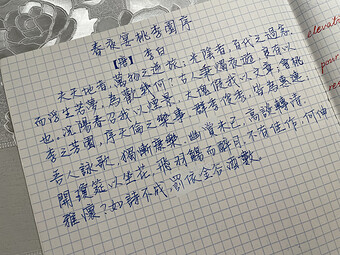 春夜宴桃李園序
【唐】 李白
夫天地者,萬物之逆旅。光陰者,百代之過客。
而浮生若夢,為歡幾何?古人秉燭夜遊,良有以
也。況陽春召我以煙景,大塊假我以文章;會桃
李之芳園,序天倫之樂事。群季俊秀,皆為惠連
吾人詠歌,獨慚康樂。幽賞未已,高談轉清。
開瓊筵以坐花,飛羽觴而醉月。不有佳作,何伸
雅懷?如詩不成,罰依金谷酒數。
elevat
pour